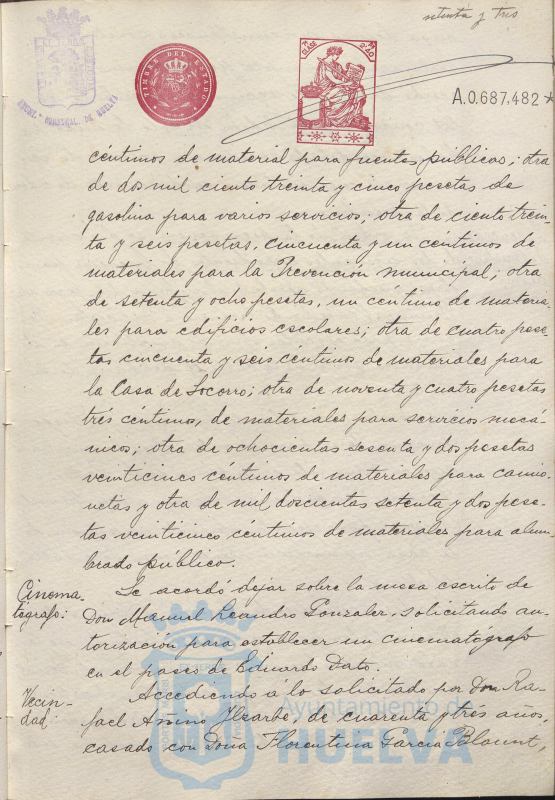 setenta y tres
AYUNT. CONSTNAL. DE HUELVA
TIMBRE DEL ESTADO
7ª CLASE
7ª 2'40
A.0.687.482*
céntimos de material para fuentes públicas; otra
de dos mil ciento treinta y cinco pesetas de
gasolina para varios servicios; otra de ciento trein-
ta y seis pesetas, cincuenta y un céntimos de
materiales para la Prevención municipal; otra
de setenta y ocho pesetas, un céntimo de materia-
les para edificios escolares; otra de cuatro pese-
tas cincuenta y seis céntimos de materiales para
la Casa de Socorro; otra de noventa y cuatro pesetas
trés céntimos, de materiales para servicios mecá-
nicos; otra de ochocientas sesenta y dos pesetas
veinticinco céntimos de materiales para camio-
netas y otra de mil doscientas setenta y dos pese-
tas veinticinco céntimos de materiales para alum-
brado público.
Cinema-
tógrafo:
Se acordó dejar sobre la mesa escrito de
Don Manuel Leandro Gonzalez, solicitando au-
torización para establecer un cinematógrafo
en el paseo de Eduardo Dato.
Vecin-
dad:
Accediendo á lo solicitado por Don Ra-
fael Ysarbe, de cuarenta y trés años,
casado con Doña Florentina García Blaunt,
Ayuntamiento de
HUELVA